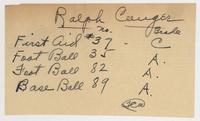 Ralph Cauger
no. Grade
First Aid #37 - C
Foot Ball 35 A.
Foot Ball 82 A.
Base Ball 89 A.